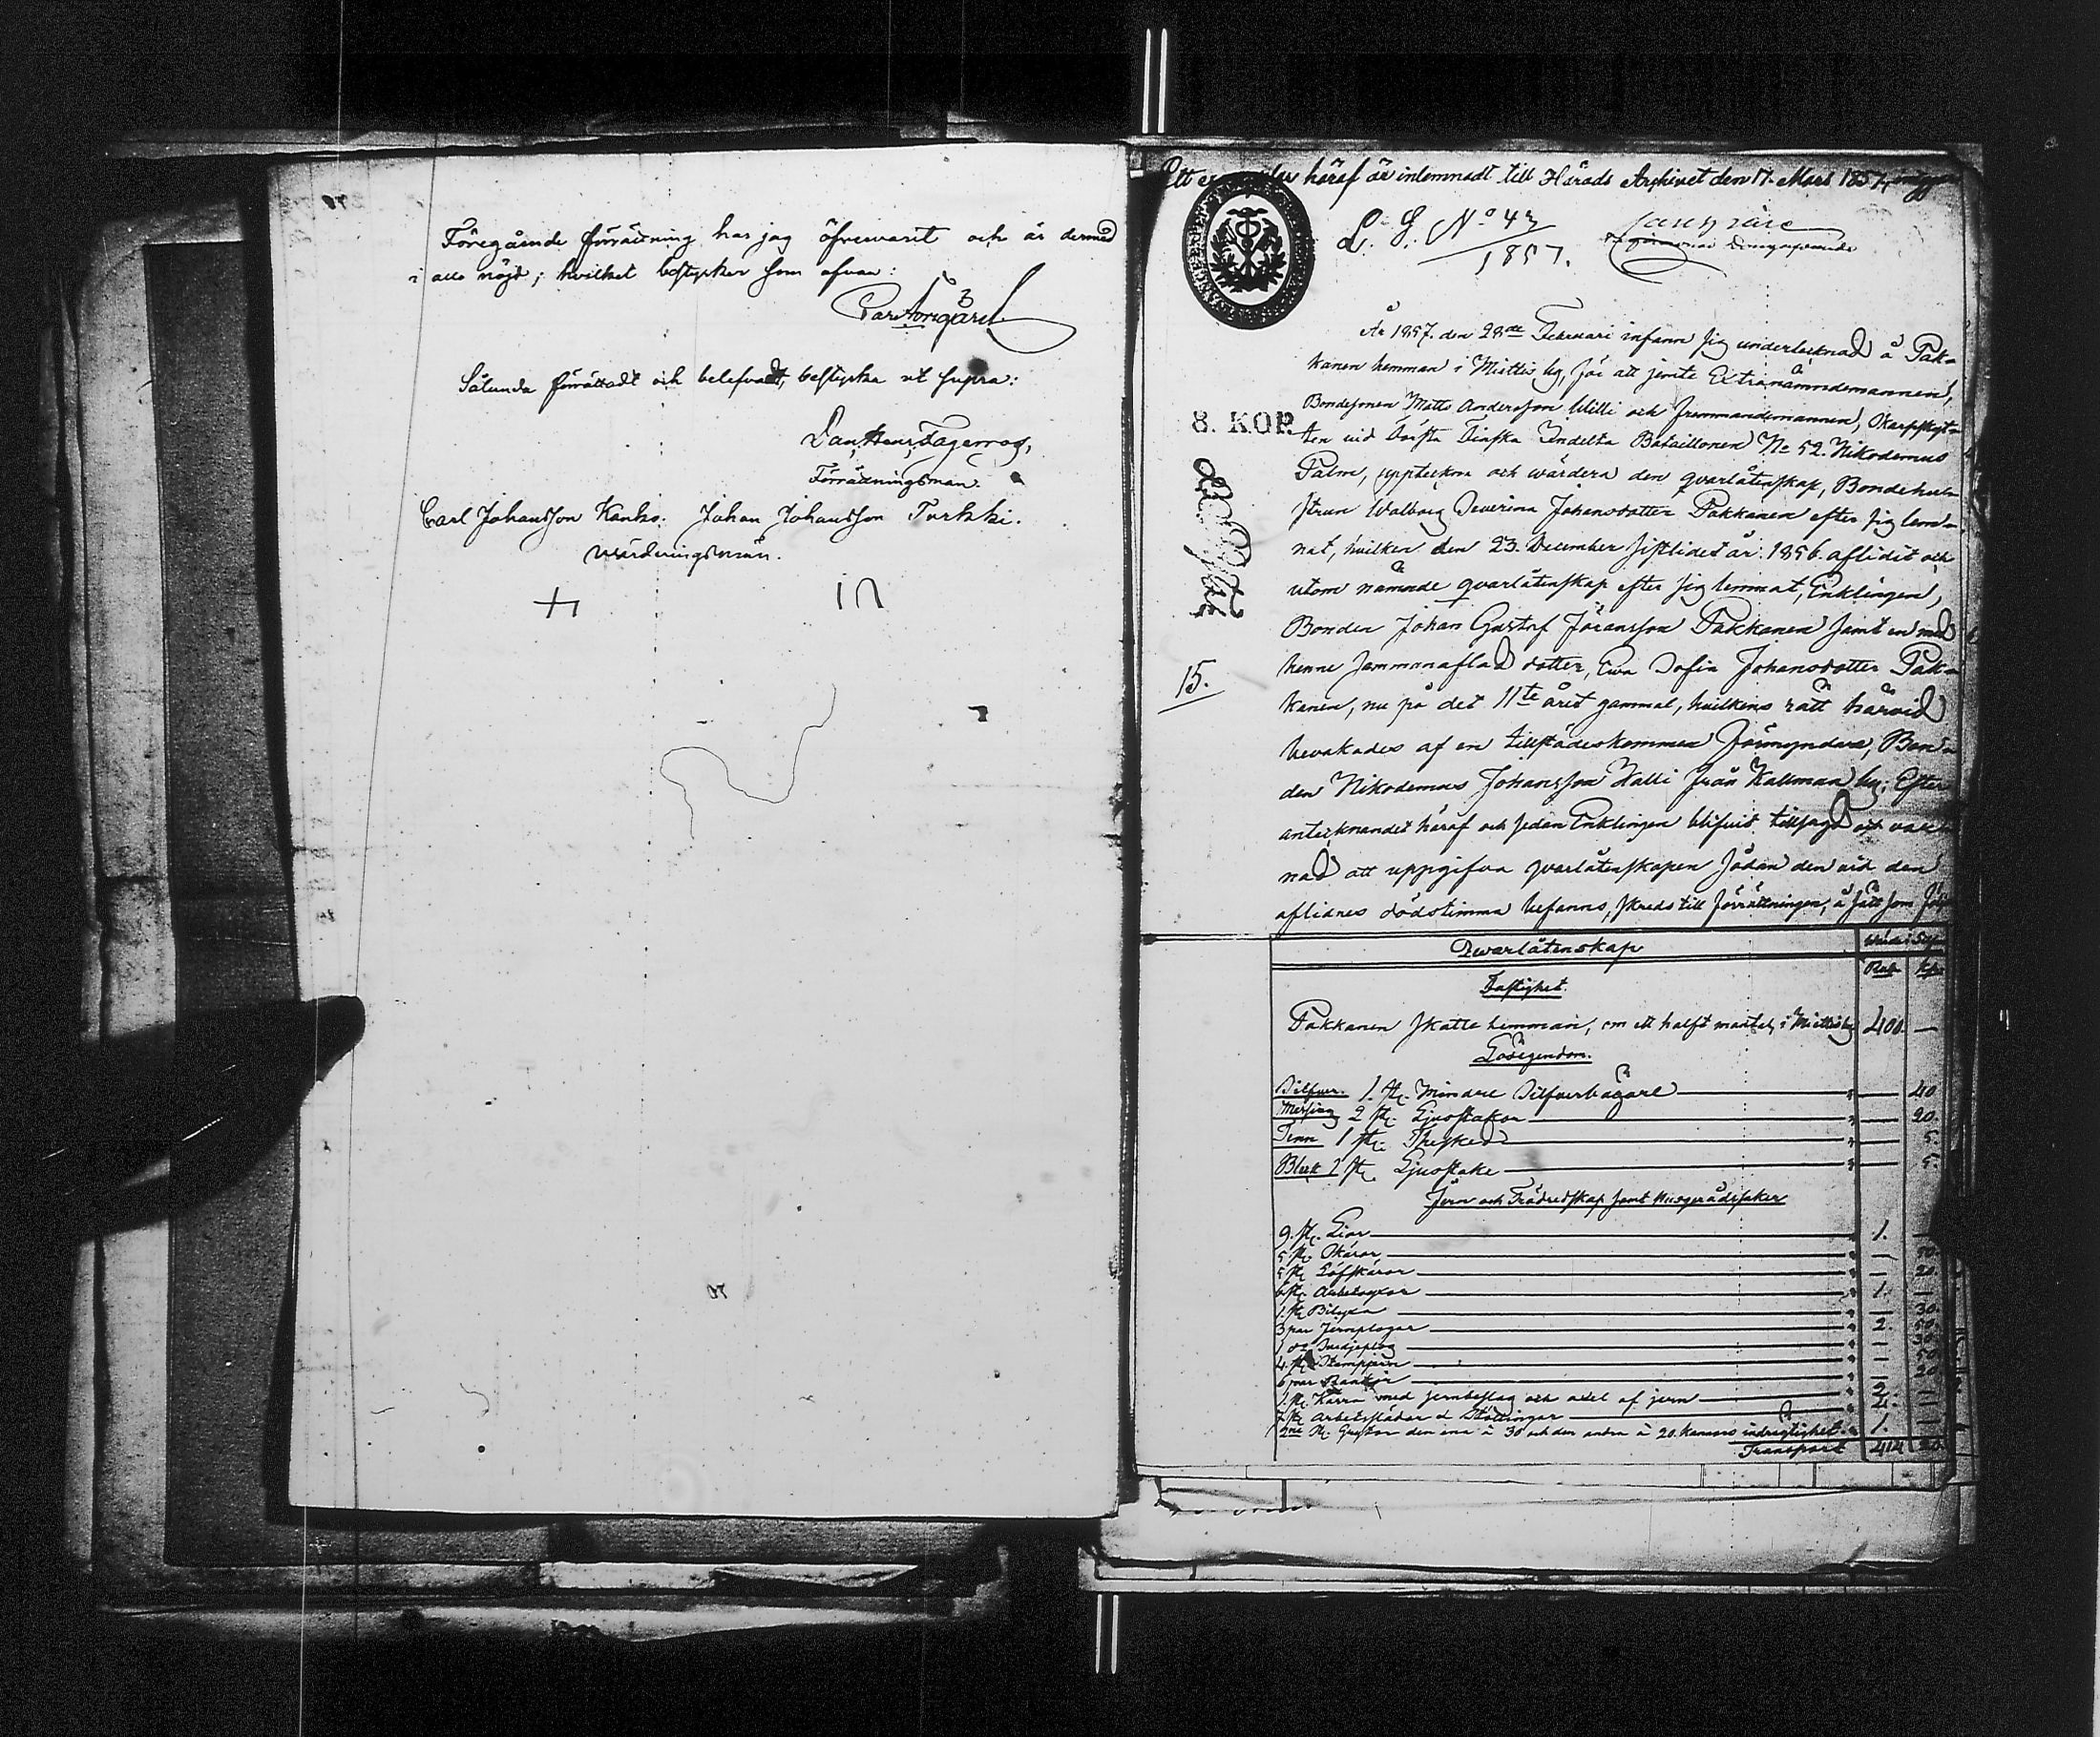 Föregående förrättning har jag öfvervarit och är dermed
i allo nöjd; hvilket bestyrker som ofvan:
Sålunda förrättadt och belefvadt, bestyrka ut supra:
Dan. Henr. Fagerroos,
Förrättningsman.
Carl Johansson Kanko. Johan Johansson Turkki.
Wärderingsmän.
Ett exemplar häraf är inlemnadt till Härads Archivet den 17. Mars 1857,
L. S. No 43
1857.
År 1857. den 28de Februari infann sig undertecknad å Pak-
kanen hemman i Miettis by, för att jemte Extranämndemannen,
Bondesonen Matts Andersson Willi och fremmandemannen, Skarpskyt-
8. KOP.
ten vid Första Finska Indelta Bataillonen No 52. Nikodemus
Palm, uppteckna och wärdera den qvarlåtenskap, Bondehu-
strun Walborg Severina Johansdotter Pakkanen efter sig lem-
nat, hvilken den 23. December sistlidet år 1856. aflidit och
utom nämnde qvarlåtenskap efter sig lemnat, Enklingen,
Bonden Johan Gustaf Jöransson Pakkanen samt en med
henne sammanaflad dotter, Eva Sofia Johansdotter Pak-
15.
kanen, nu på det 11te året gammal, hvilkens rätt härvid
bevakades af en tillstädeskommen förmyndare, Bon-
den Nikodemus Johansson Halli från Kallman by. Efter
antecknandet häraf och sedan Enklingen blifvit tillsagd och var-
nad att uppgifva qvarlåtenskapen sådan den vid den
aflidnes dödstimma befanns, skreds till förrättningen, å sätt som
Qvarlåtenskap
Rub. Kop.
Fastighet.
Pakkanen skatte hemman, om ett halft mantal, i Miettis by 400. —
Lösegendom.
Silfver. 1. st. Mindre Silfverbägare " — 40
Messing 2 st. Ljusstakar " — 20.
Tenn 1 st. Thesked " — 5.
Bleck 1 st. Ljusstake " — 5.
Jern och Trädredskap samt Husgerådssaker
9. st. Liar " 1. —
5 st. Skäror " — 50.
5 st. Löfskäror " — 20.
6 st. Arbetsyxor " 1. —
1. st. Bilyxa " — 30.
3 par Jernplogar " 2. 50.
4. st. Stampjern " — 50
1. st. Kärra med jernbeslag och axel af jern " 2. —
7 st. Arbetsslädar " 4. —
2ne st. Grytor den ena à 30 och den andra à 20. kannors indrägtighet " 1. —
Transport 414 20.